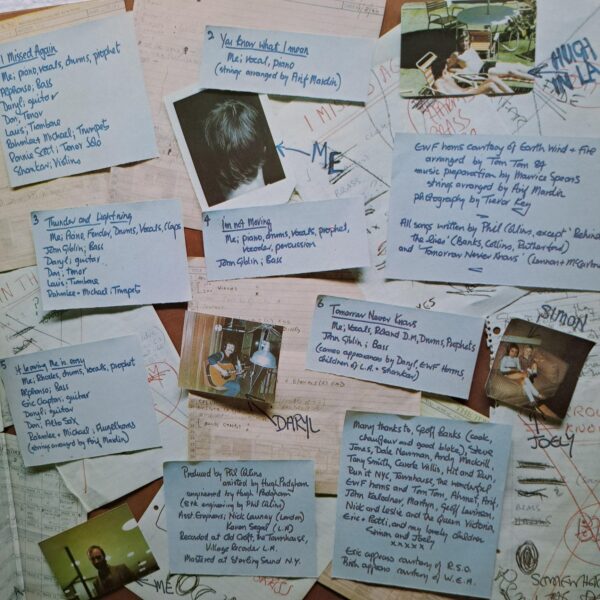 1 I Missed Again
Me; piano, vocals, drums, prophet
Alphonso; Bass
Daryl; guitar
Don; Tenor
Louis; Trombone
Rahmlee + Michael; Trumpets
Ronnie Scott; Tenor Solo
Shankar; Violins
2 You Know what I mean
Me; vocal, piano
(strings arranged by Arif Mardin)
HUGH
IN LA
I MISSED AG
ME
EWF horns courtesy of Earth Wind + Fire
arranged by Tom Tom 84
music preparation by Maurice Spears
strings arranged by Arif Mardin
photography by Trevor Key
All songs written by Phil Collins, except 'Behind
the lines' (Banks, Collins, Rutherford)
and 'Tomorrow Never Knows' (Lennon + McCartney
3 Thunder and Lightning
Me; Piano, Fender, Drums, Vocals, Claps
John Giblin; Bass
Daryl; guitar
Don; Tenor
Louis; Trombone
Rahmlee + Michael; Trumpets
4 I'm not Moving
Me; piano, drums, vocals, prophet,
vocoder, percussion
John Giblin; Bass
5 If leaving me is easy
Me; Rhodes, drums, vocals, prophet
Alphonso; Bass
Eric Clapton; guitar
Daryl; guitar
Don; Alto Sax
Rahmlee + Michael; Flugelhorns
(strings arranged by Arif Mardin)
DARYL
6 Tomorrow Never Knows
Me; Vocals, Roland D.M, Drums, Prophets
John Giblin; Bass
(cameo appearances by Daryl, EWF Horns,
children of L.A. + Shankar)
SIMON
JOELY
Produced by Phil Collins
assisted by Hugh Padgham
engineered by Hugh Padgham
(8 trk engineering by Phil Collins)
Asst Engineers; Nick Launay (London)
Karen Siegel (L.A)
Recorded at Old Croft, the Townhouse,
Village Recorder L.A.
Mastered at Sterling Sound N.Y.
ME
Many thanks to, Geoff Banks (cook,
chauffeur and good bloke), Steve
Jones, Dale Newman, Andy Mackrill,
Tony Smith, Carole Willis, Hit and Run,
Run it NYC, Townhouse, the wonderful
EWF horns and Tom Tom, Ahmet, Arif,
John Kalodner, Martyn, Geoff Levinson,
Nick and Leslie and the Queen Victoria,
Eric + Patti, and my lovely children
Simon and Joely
x x x x x
Eric appears courtesy of R.S.O.
Phil appears courtesy of W.E.A.